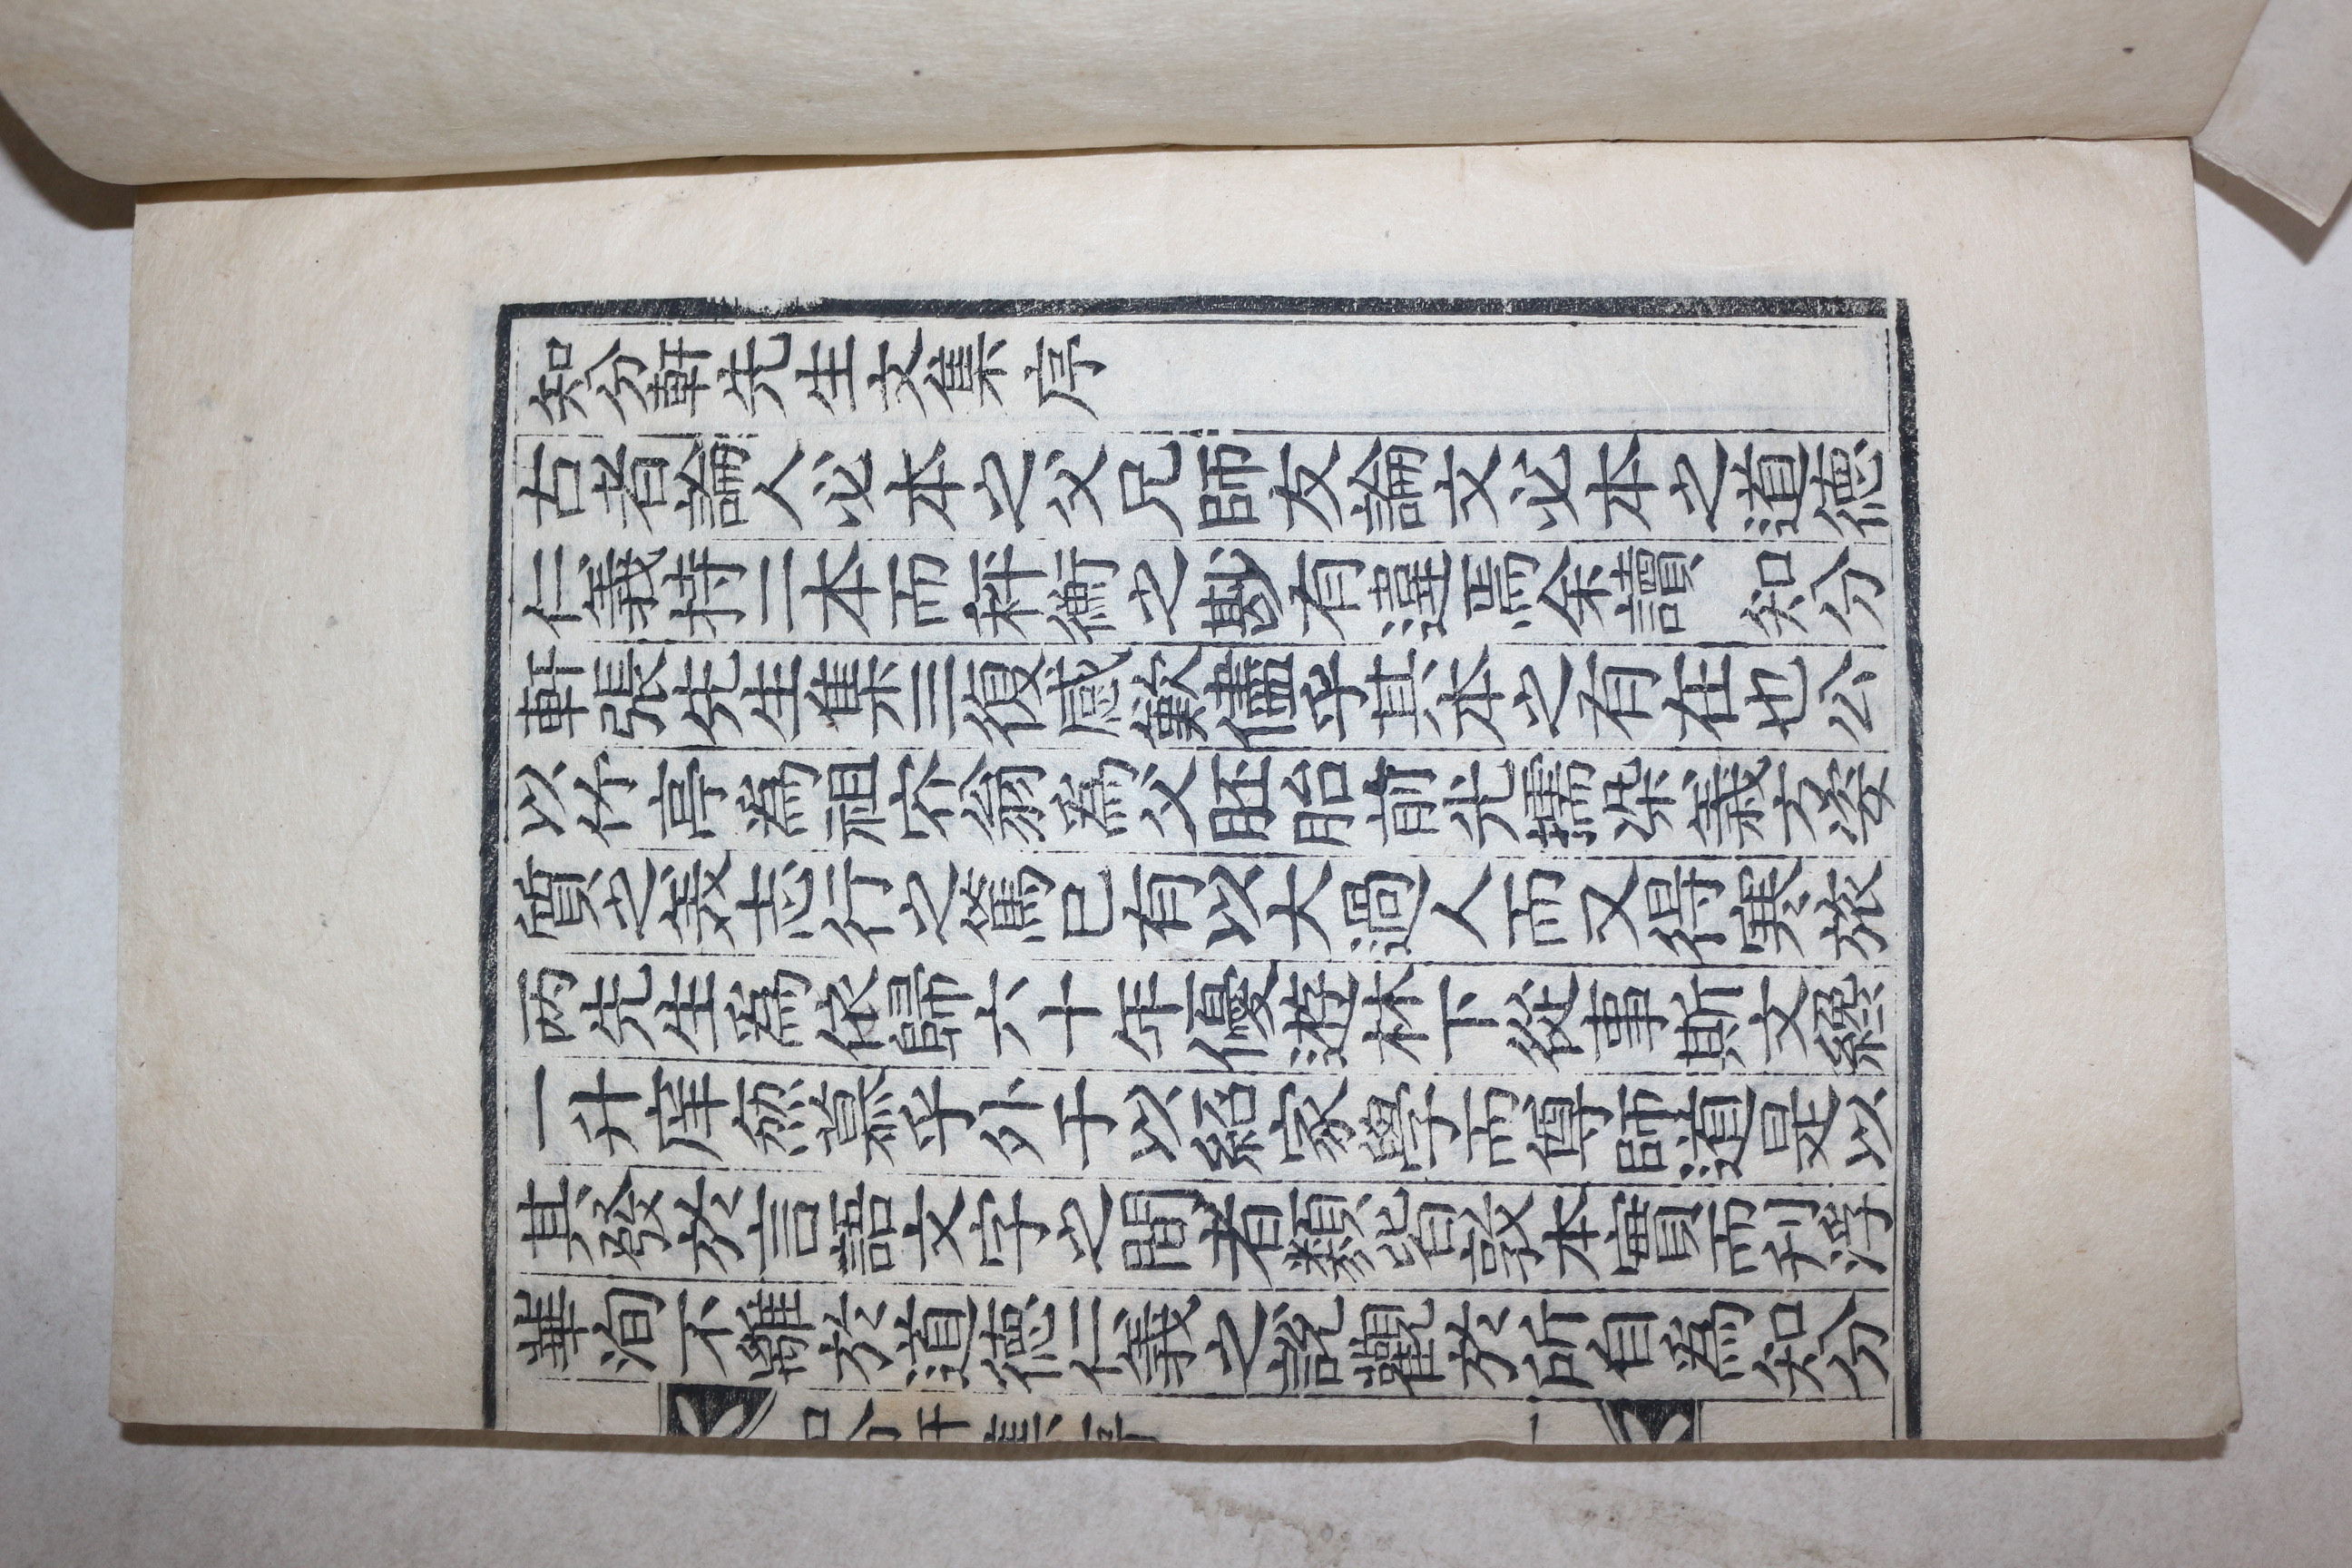 知分軒先生文集序
古者論人必本之父兄師友論文必本之道德
仁義持二本而秤衡之尠有漟焉余讀 知分
軒張先生集三復感歎儘乎其本之有在也公
以竹亭爲祖宗翁爲父胚胎前光擩染義方姿
質之美志行之篤已有以大過人而又得寒旅
兩先生爲依歸六十年優遊林下從事斯文絕
一升庠慾慕乎外于以紹家學而尊師道是以
其發於言語文字之間者類皆敦本實而刋浮
華洵不離於道德仁義之說觀於所自爲知分
知分軒集序 一